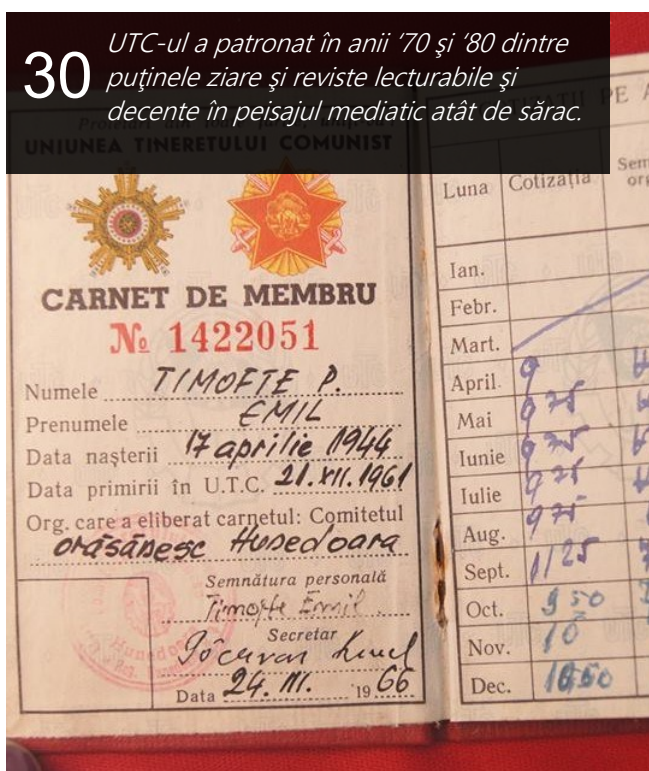 30
UTC-ul a patronat în anii '70 şi '80 dintre
puţinele ziare şi reviste lecturabile şi
decente în peisajul mediatic atât de sărac.
UNIUNEA TINERETULUI COMUNIST
CARNET DE MEMBRU
№ 1422051
Numele TIMOFTE P.
Prenumele EMIL
Data naşterii 17 aprilie 1944
Data primirii în U.T.C. 21.XII.1961
Org. care a eliberat carnetul: Comitetul
orăşănesc Hunedoara
Semnătura personală
Timofte Emil.
Secretar
Data 24. III. 1966
PE
Luna Cotizaţia
Ian.
Febr.
Mart.
April. 9
Mai 9 75
Iunie 9 75
Iulie 9 75
Aug. 9 75
Sept. 11 25
Oct. 9 50
Nov. 10
Dec. 10 50